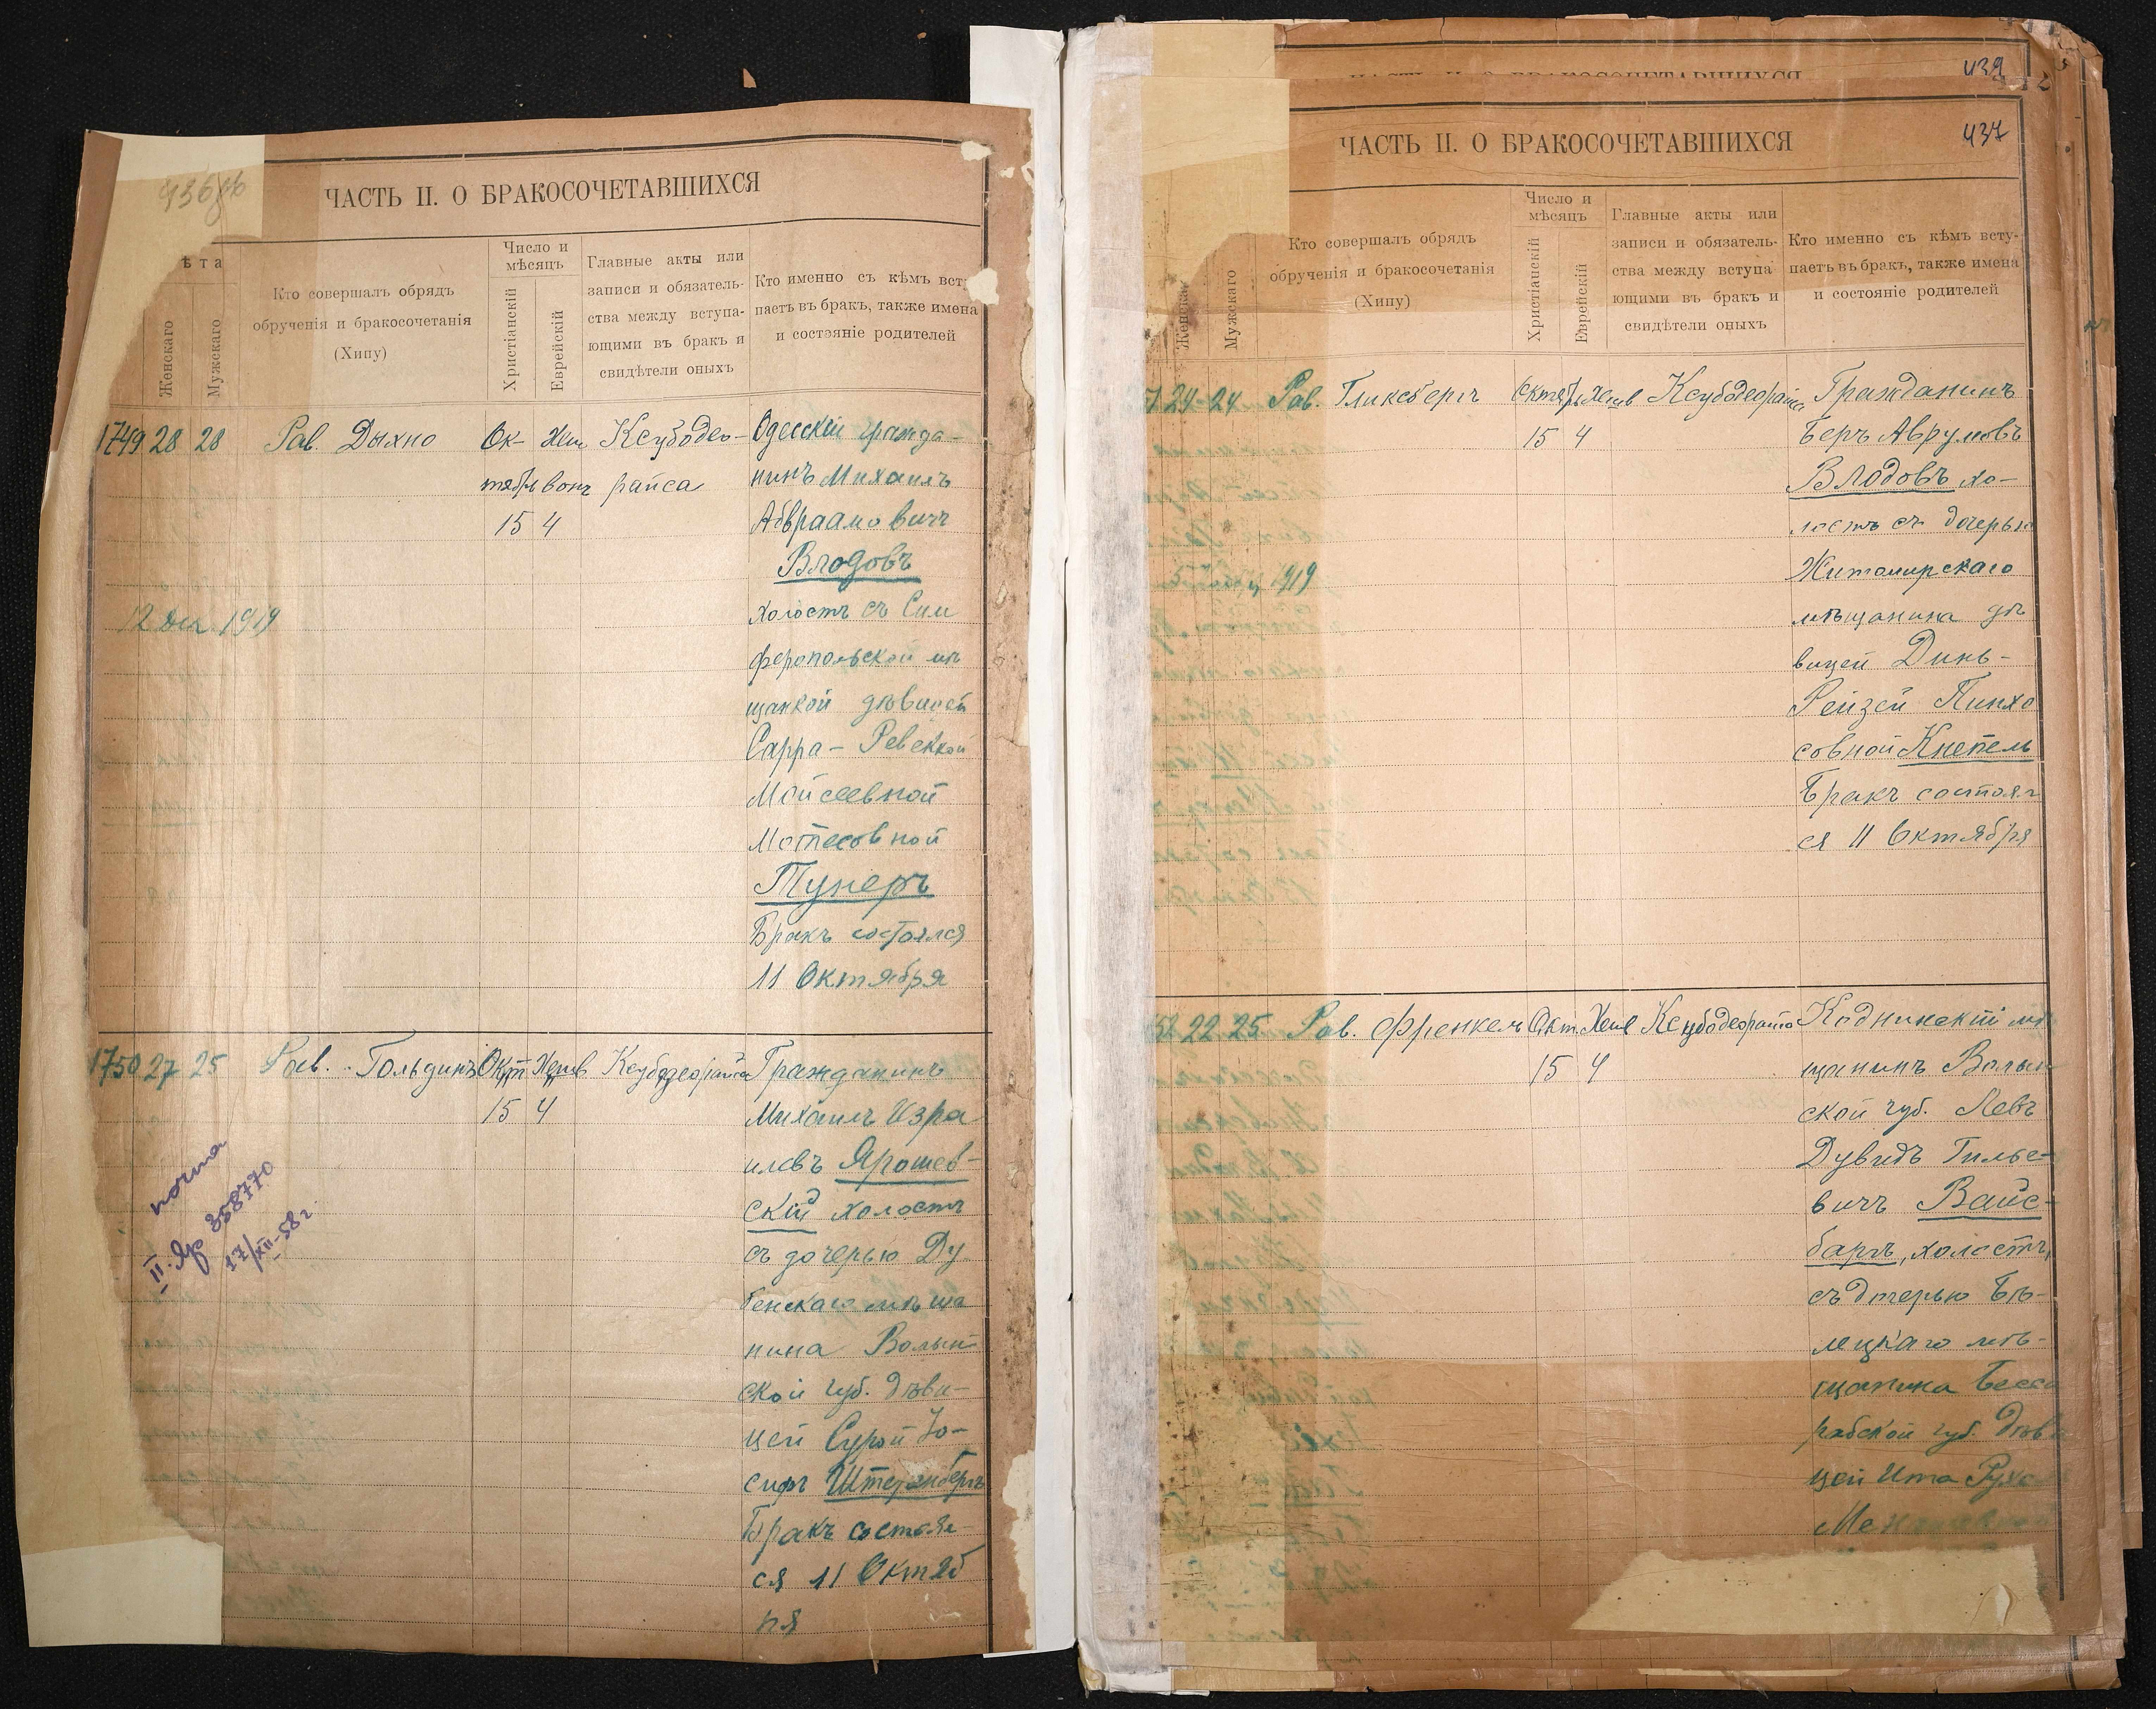 436об
ЧАСТЬ II. О БРАКОСОЧЕТАВШИХСЯ
ѣта
Женскаго
Мужскаго
Кто совершалъ обрядъ
обрученія и бракосочетанія
(Хипу)
Число и
мѣсяцъ
Христіанскій
Еврейскій
Главные акты или
записи и обязатель-
ства между вступа-
ющими въ бракъ и
свидѣтели оныхъ
Кто именно съ кѣмъ всту
паетъ въ бракъ, также имена
и состояніе родителей
1749 28 28 Рав. Дыхно Ок- Хеш Ксубодео- Одесскій гражда-
тябрь вонъ райса нинъ Михаилъ
15 4 Абраамовичъ
Влодовъ
12 Дек. 1919 холостъ съ Сим
феропольской мѣ
щанкой дѣвицей
Сарра-Ревеккой
Мойсеевной
Мотесовной
Тунеръ
Бракъ состоялся
11 Октября
1750 27 25 Рав. Гольдинъ Окт Хешв Ксубодеорайса Гражданинъ
15 4 Михаилъ Изра
илевъ Ярошев-
скій холостъ
съ дочерью Ду
бенскаго мѣща
нина Волын-
ской губ. дѣви-
цей Сурой Іо-
сифъ Штернбергъ
Бракъ состоял
ся 11 Октяб
ря
почта
II-Яр 358770
17/XII-58г
439
437
ЧАСТЬ II. О БРАКОСОЧЕТАВШИХСЯ
Женскаго
Мужскаго
Кто совершалъ обрядъ
обрученія и бракосочетанія
(Хипу)
Число и
мѣсяцъ
Христіанскій
Еврейскій
Главные акты или
записи и обязатель-
ства между вступа
ющими въ бракъ и
свидѣтели оныхъ
Кто именно съ кѣмъ всту-
паетъ въ бракъ, также имена
и состояніе родителей
1 24-24 Рав. Гликсбергъ Октябрь Хешв Ксубодеорайса Гражданинъ
15 4 Беръ Аврумовъ
Влодовъ хо-
лостъ съ дочерью
1919 Житомирскаго
мѣщанина дѣ
вицей Динь-
Рейзей Пинхо
совной Кнепель
Бракъ состоял
ся 11 Октября
52 22 25 Рав. Френкель Окт. Хешв Ксубодеорайта Коднинскій мѣ
15 4 щанинъ Волын
ской губ. Левъ
Дувидъ Гилье-
вичъ Вайс-
баргъ, холостъ,
съ дочерью Бѣ-
лецкаго мѣ-
щанина Бесса
рабской губ. дѣв
цей Ита Рухл